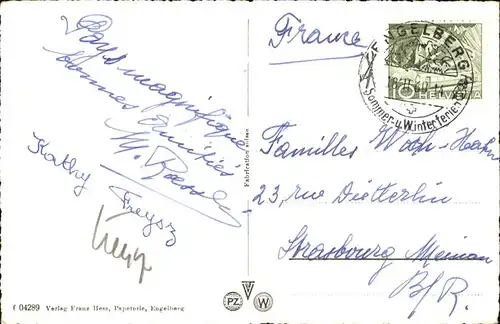 Pays magnifique
bonnes amitiés
M.
Kathy
Freysz
France
ENGELBERG
Sommer-u.Winterferien
10 HELVETIA
Familles
23, rue Dietterlin
Strasbourg Meinau
B/R.
Fabrication suisse
f 04289 Verlag Franz Hess, Papeterie, Engelberg
PZ
W